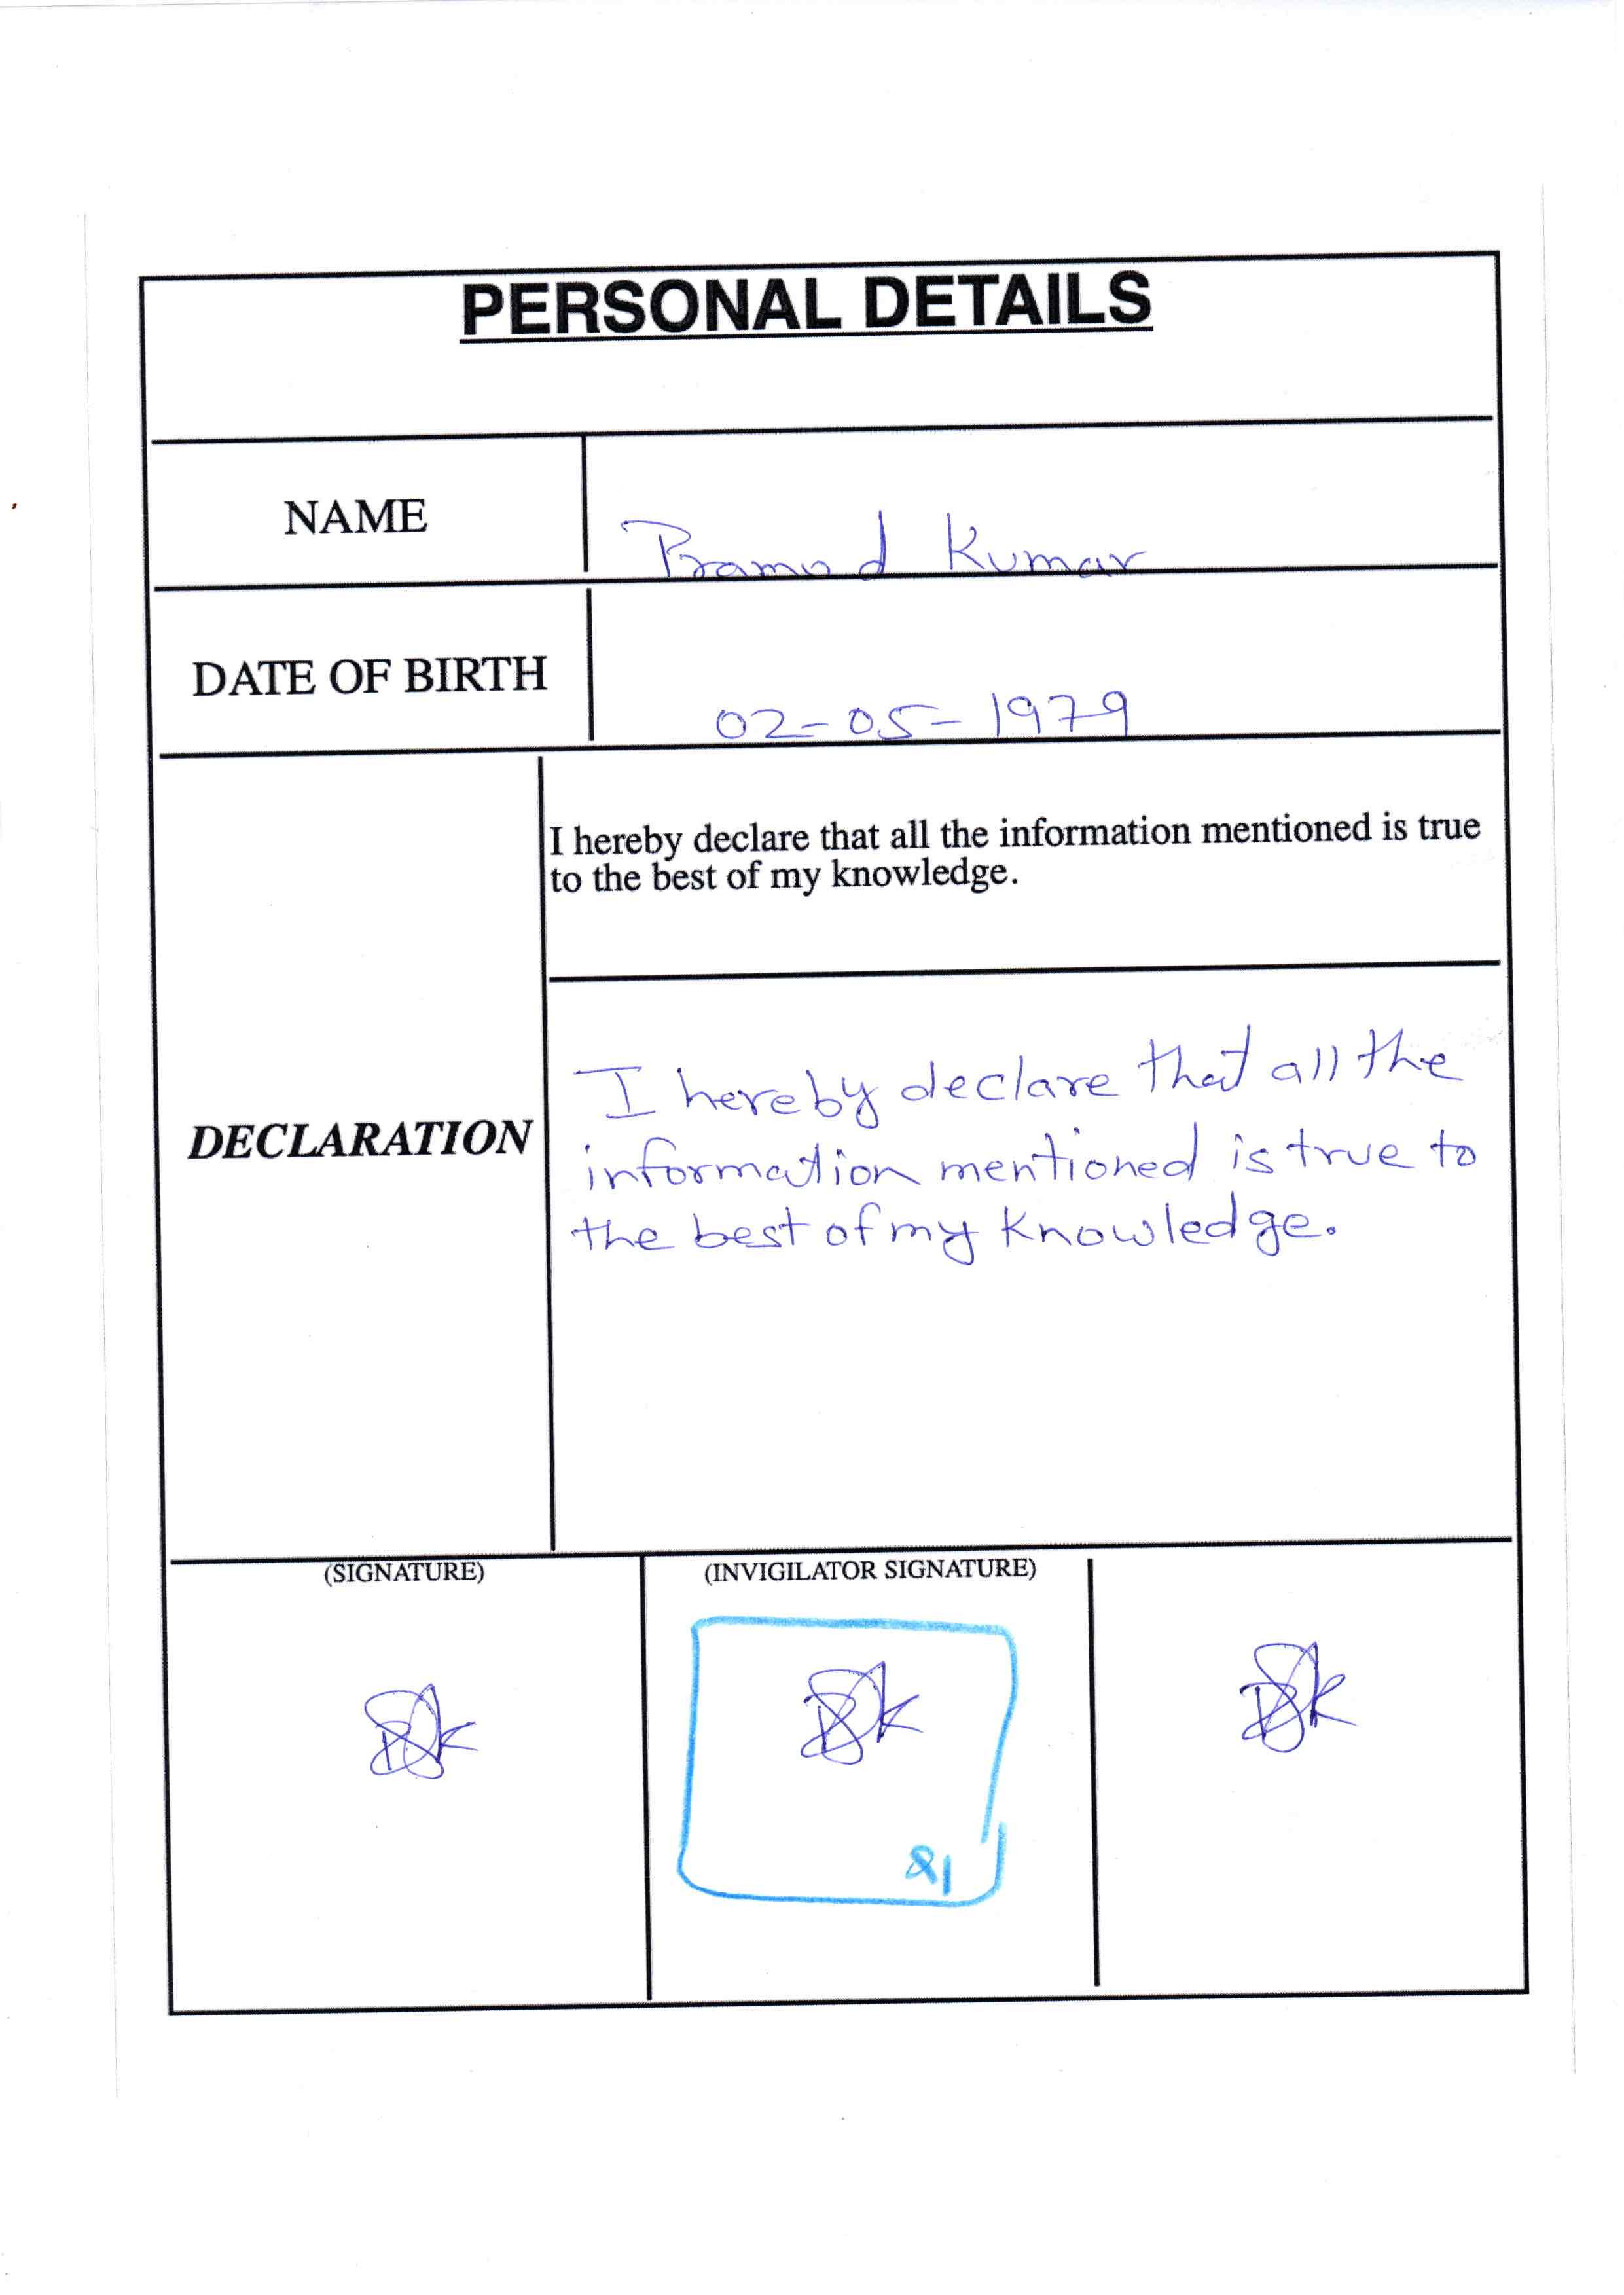 PERSONAL DETAILS
NAME
Pramod Kumar
DATE OF BIRTH
02-05-1979
I hereby declare that all the information mentioned is true
to the best of my knowledge.
DECLARATION
I hereby declare that all the
information mentioned is true to
the best of my knowledge.
(SIGNATURE)
(INVIGILATOR SIGNATURE)